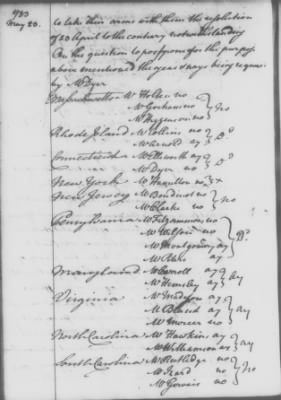 1783
May 23.
to take their arms with them the resolution
of 23 April to the contrary notwithstanding
On the question to postpone for the purpose
above mentioned the yeas & nays being required
by Mr Dyer
Massachusetts Mr Holten no
Mr Gorham no } no
Mr Higginson no
Rhode Island Mr Collins no
Mr Arnold no } do
Connecticut Mr Ellsworth ay
Mr Dyer no } do
New York Mr Hamilton no } x
New Jersey Mr Boudinot no
Mr Clarke no } no
Pensylvania Mr Fitzsimmons no
Mr Wilson no
Mr Montgomery ay } Do
Mr ay
Maryland Mr Carroll ay
Mr Hemsley ay } ay
Virginia Mr Madison ay
Mr Bland ay } ay
Mr Mercer no
North Carolina Mr Hawkins ay
Mr Williamson ay } ay
South Carolina Mr Rutledge no
Mr Izard no } no
Mr Gervais no